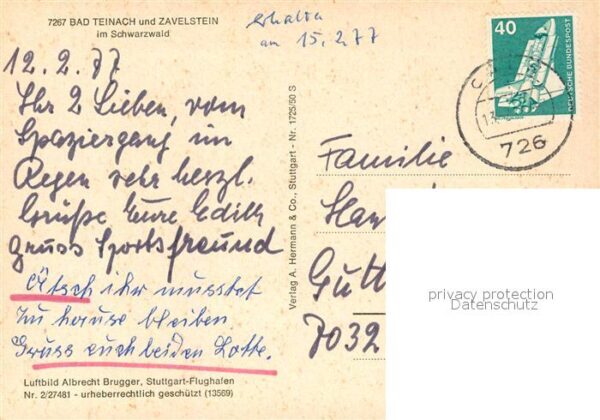 7267 BAD TEINACH und ZAVELSTEIN
im Schwarzwald
erhalten
am 15.2.77
40
DEUTSCHE BUNDESPOST
726
12.2.77
Ihr 2 Lieben, vom
Spaziergang im
Regen sehr herzl.
Grüße Eure Edith
Gruss Sportsfreund
Ätsch ihr musstet
zu hause bleiben
Gruss euch beiden Lotte.
Luftbild Albrecht Brugger, Stuttgart-Flughafen
Nr. 2/27481 - urheberrechtlich geschützt (13569)
Verlag A. Hermann & Co., Stuttgart - Nr. 1725/50 S
Familie
7032
privacy protection
Datenschutz